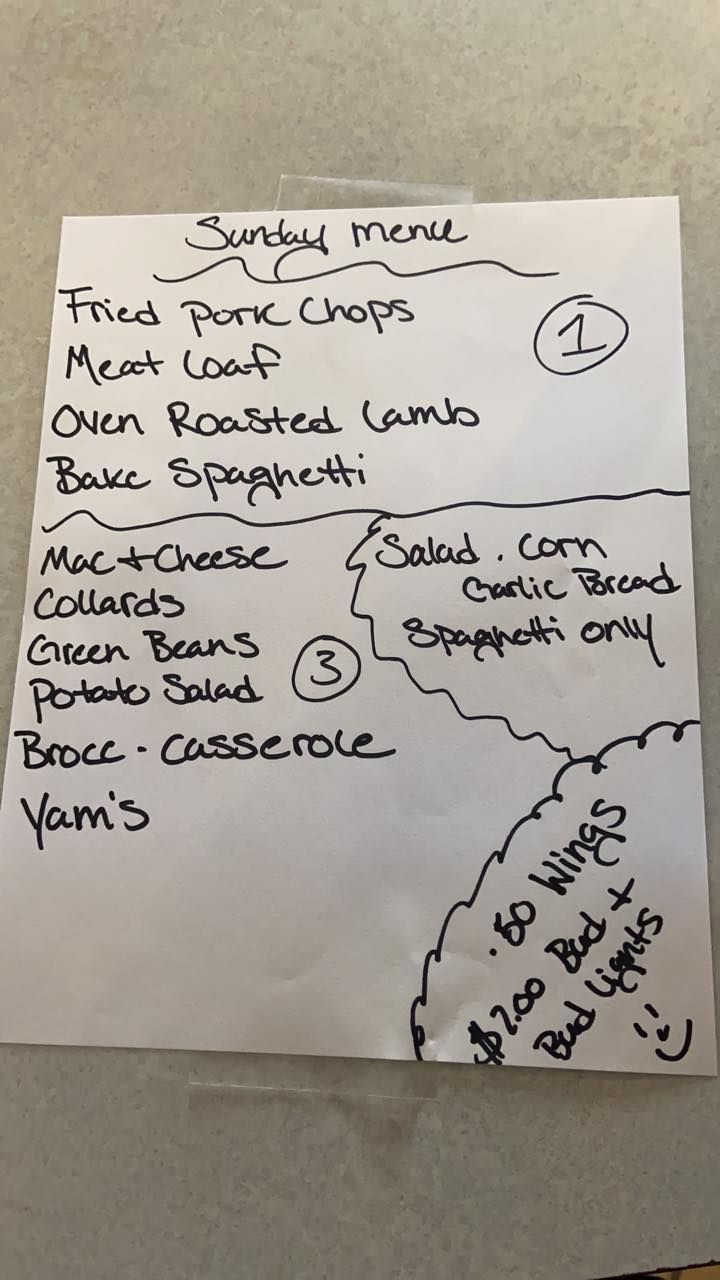 Sunday menu
Fried Pork Chops
1
Meat Loaf
Oven Roasted Lamb
Bake Spaghetti
Mac + Cheese
Collards
Green Beans
Potato Salad
3
Brocc. Casserole
Yam's
Salad. Corn
Garlic Bread
Spaghetti only
.50 Wings
$2.00 Bud +
Bud Lights